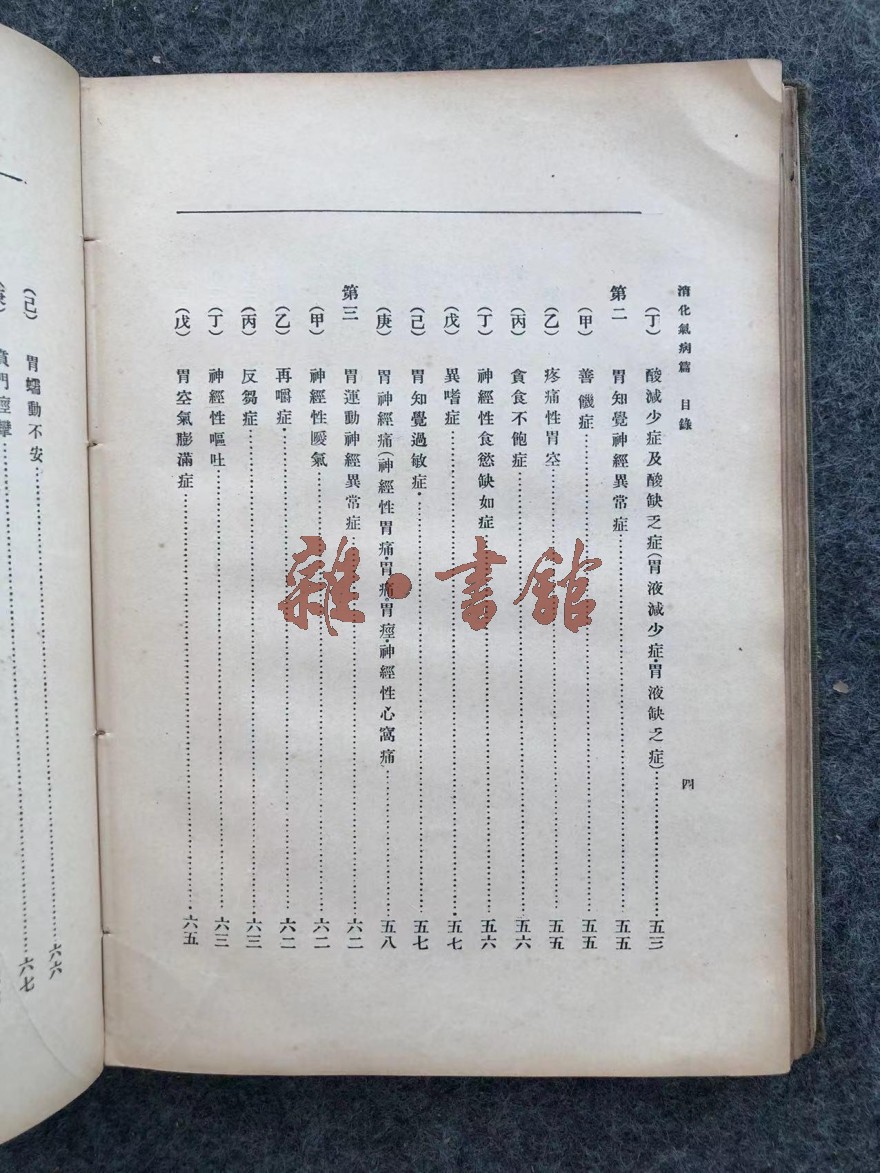 消化氣病篇 目錄 四
(丁) 酸減少症及酸缺乏症(胃液減少症·胃液缺乏症)……五三
第二 胃知覺神經異常症……五五
(甲) 善饑症……五五
(乙) 疼痛性胃空……五五
(丙) 貪食不飽症……五六
(丁) 神經性食慾缺如症……五六
(戊) 異嗜症……五七
(己) 胃知覺過敏症……五七
(庚) 胃神經痛(神經性胃痛·胃痛。胃痙·神經性心窩痛……五八
第三 胃運動神經異常症……六二
(甲) 神經性噯氣……六二
(乙) 再嚼症……六二
(丙) 反芻症……六三
(丁) 神經性嘔吐……六三
(戊) 胃空氣膨滿症……六五
(己) 胃蠕動不安……六六
(庚) 賁門痙攣……六七
雜·書館